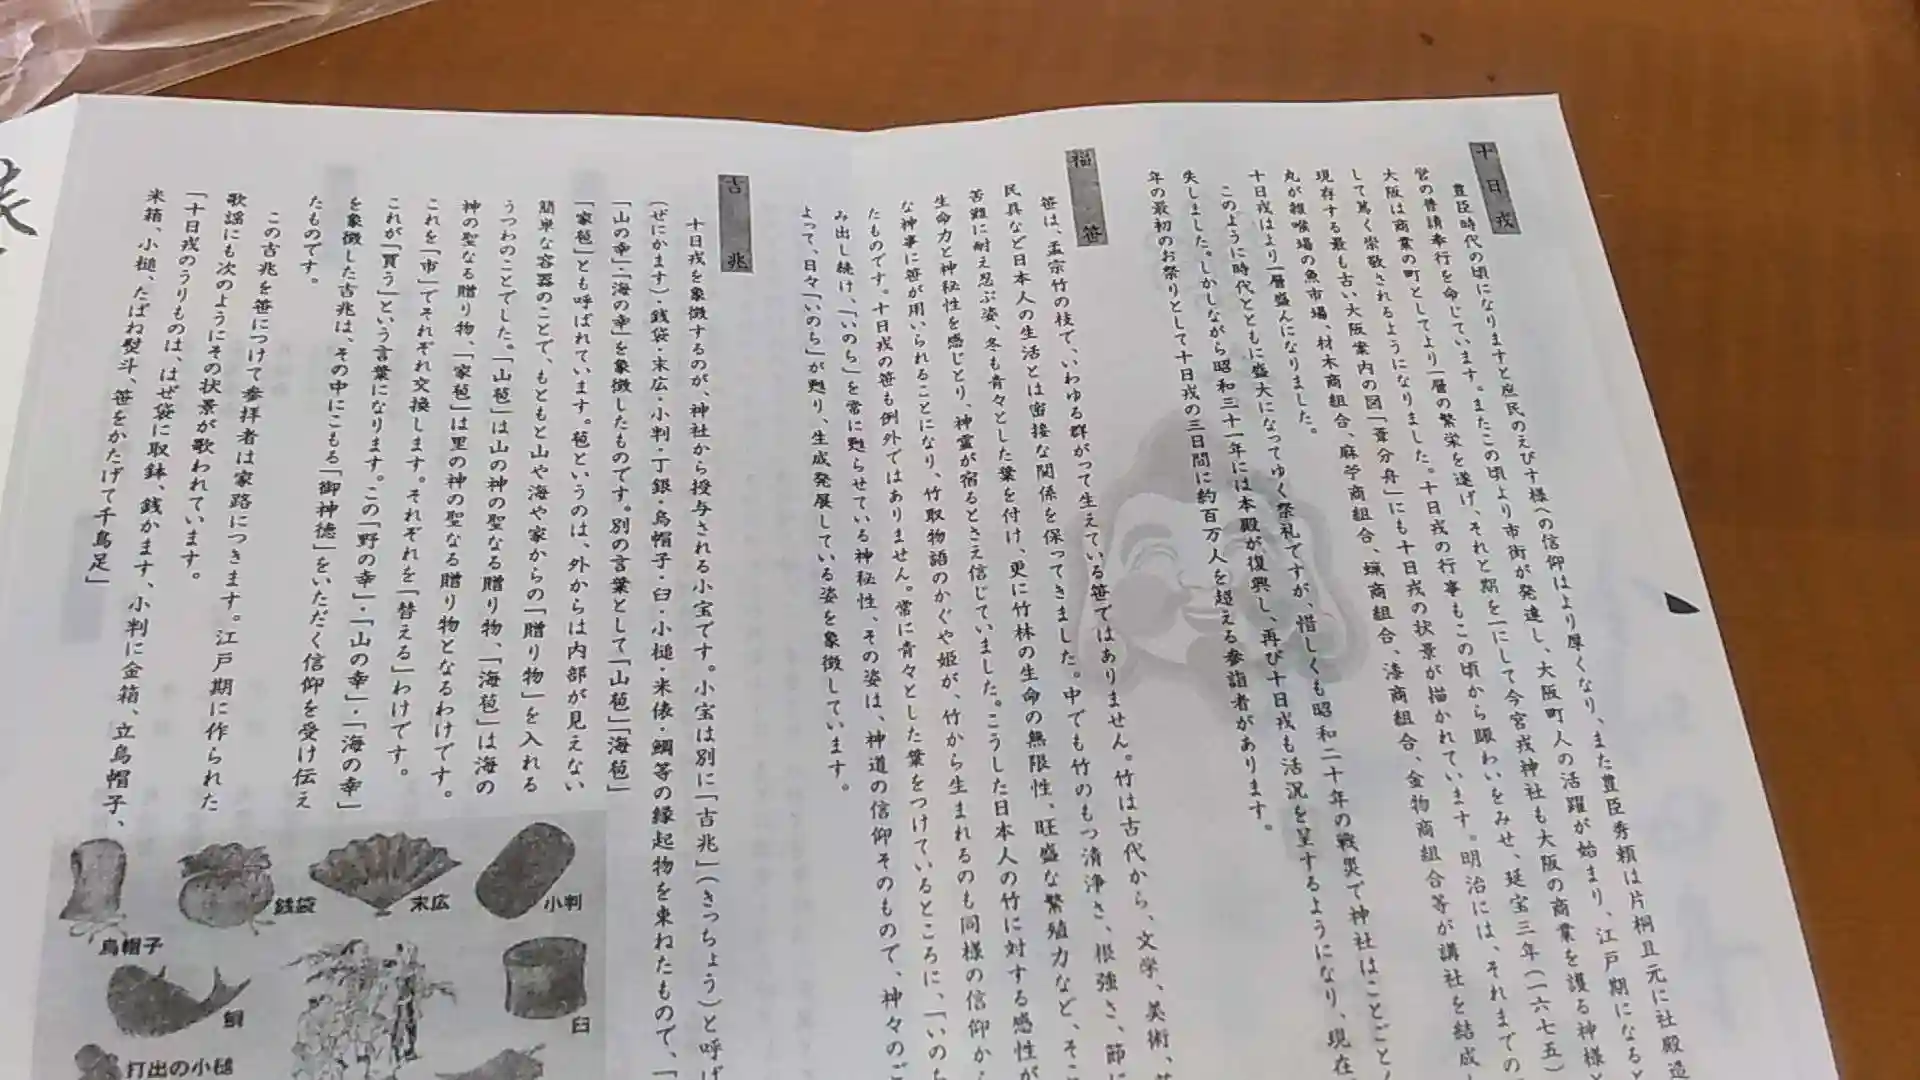 十日戎
豊臣時代の頃になりますと庶民のえびす様への信仰はより厚くなり、また豊臣秀頼は片桐且元に社殿造
営の普請奉行を命じています。またこの頃より市街が発達し、大阪町人の活躍が始まり、江戸期になると
大阪は商業の町としてより一層の繁栄を遂げ、それと期を一にして今宮戎神社も大阪の商業を護る神様と
して篤く崇敬されるようになりました。十日戎の行事もこの頃から賑わいをみせ、延宝三年(一六七五)
現存する最も古い大阪案内の図「葦分舟」にも十日戎の状景が描かれています。明治には、それまでの
丸が雑喉場の魚市場、材木商組合、麻苧商組合、蝋商組合、漆商組合、金物商組合等が講社を結成
十日戎はより一層盛んになりました。
このように時代とともに盛大になってゆく祭礼ですが、惜しくも昭和二十年の戦災で神社はことごと
失しました。しかしながら昭和三十一年には本殿が復興し、再び十日戎も活況を呈するようになり、現在
年の最初のお祭りとして十日戎の三日間に約百万人を超える参詣者があります。
福笹
笹は、孟宗竹の枝で、いわゆる群がって生えている笹ではありません。竹は古代から、文学、美術、
民具など日本人の生活とは密接な関係を保ってきました。中でも竹のもつ清浄さ、根強さ、節に
苦難に耐え忍ぶ姿、冬も青々とした葉を付け、更に竹林の生命の無限性、旺盛な繁殖力など、そこ
生命力と神秘性を感じとり、神霊が宿るとさえ信じていました。こうした日本人の竹に対する感性が
な神事に笹が用いられることになり、竹取物語のかぐや姫が、竹から生まれるのも同様の信仰か
たものです。十日戎の笹も例外ではありません。常に青々とした葉をつけているところに、「いのち
み出し続け、「いのち」を常に甦らせている神秘性、その姿は、神道の信仰そのもので、神々のご
よって、日々「いのち」が甦り、生成発展している姿を象徴しています。
吉兆
十日戎を象徴するのが、神社から授与される小宝です。小宝は別に「吉兆」(きっちょう)と呼ば
(ぜにかます)・銭袋・末広・小判・丁銀・烏帽子・臼・小槌・米俵・鯛等の縁起物を束ねたもので、「
「山の幸」・「海の幸」を象徴したものです。別の言葉として「山苞」「海苞」
「家苞」とも呼ばれています。苞というのは、外からは内部が見えない
簡単な容器のことで、もともと山や海や家からの「贈り物」を入れる
うつわのことでした。「山苞」は山の神の聖なる贈り物、「海苞」は海の
神の聖なる贈り物、「家苞」は里の神の聖なる贈り物となるわけです。
これを「市」でそれぞれ交換します。それぞれを「替える」わけです。
これが「買う」という言葉になります。この「野の幸」・「山の幸」・「海の幸」
を象徴した吉兆は、その中にこもる「御神徳」をいただく信仰を受け伝え
たものです。
この吉兆を笹につけて参拝者は家路につきます。江戸期に作られた
歌謡にも次のようにその状景が歌われています。
「十日戎のうりものは、はぜ袋に取鉢、銭かます、小判に金箱、立烏帽子、
米箱、小槌、たばね熨斗、笹をかたげて千鳥足」
烏帽子
銭袋
末広
小判
鯛
臼
打出の小槌